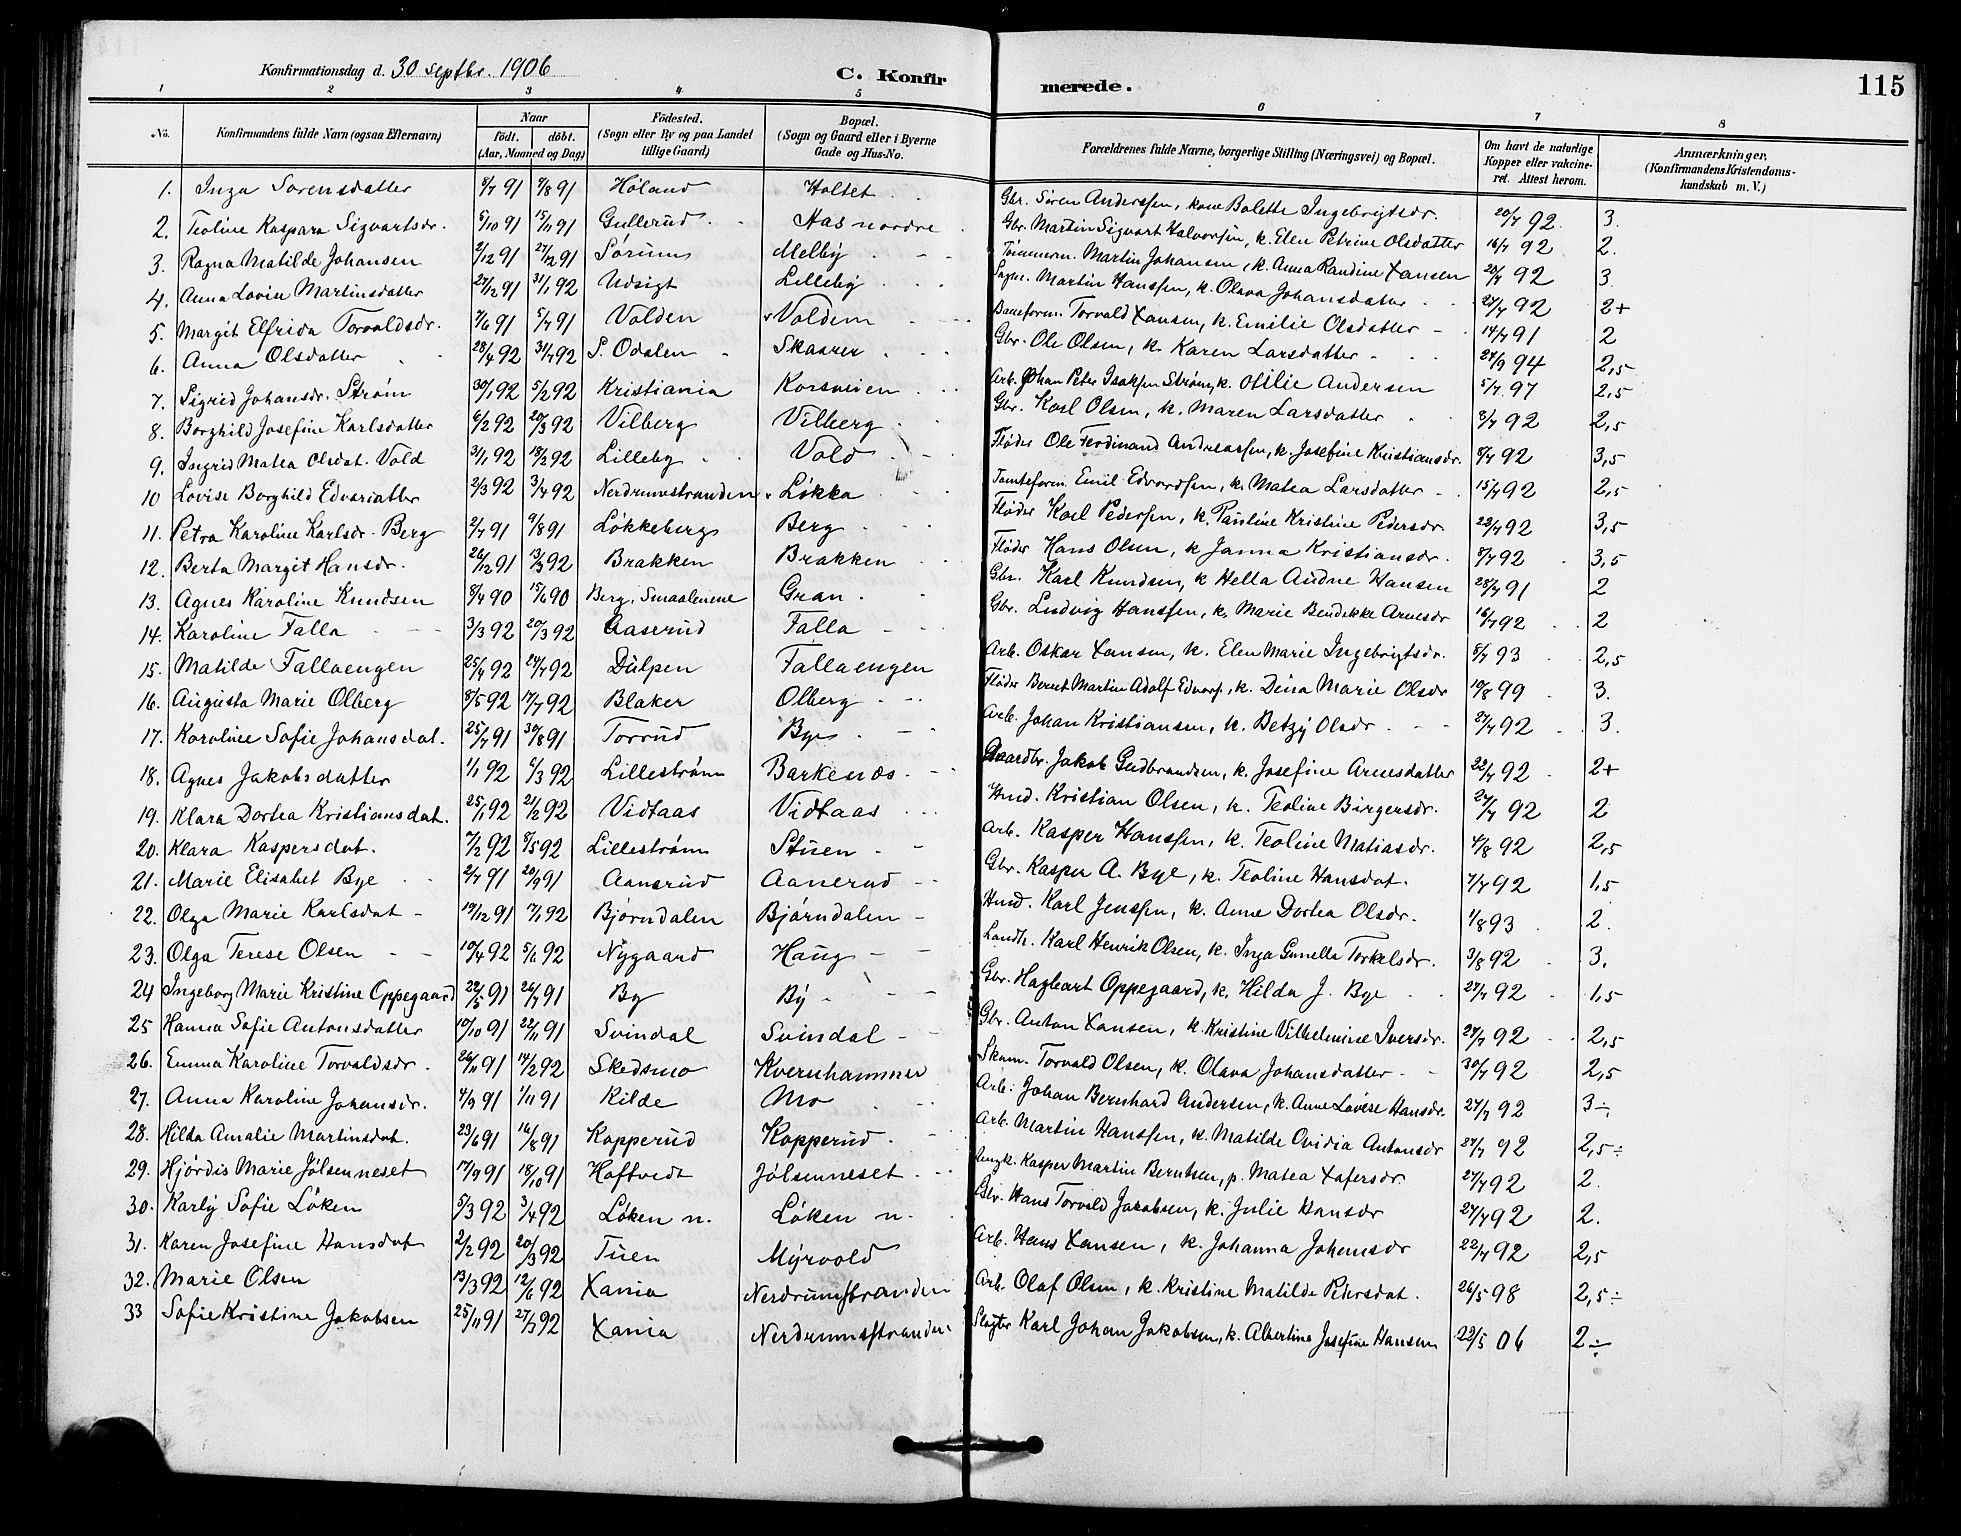 Konfirmationsdag d. 30 septbr. 1906
C. Konfirmerede.
115
1 2 3 4 5 6 7 8
No. Konfirmandens fulde Navn (ogsaa Efternavn) Naar født. døbt. (Aar, Maaned og Dag) Fødested. (Sogn eller By og paa Landet tillige Gaard) Bopæl. (Sogn og Gaard eller i Byerne Gade og Hus-No. Forældrenes fulde Navne, borgerlige Stilling (Næringsvei) og Bopæl. Om havt de naturlige Kopper eller vakcineret. Attest herom. Anmærkninger. (Konfirmandens Kristendomskundskab m. V.)
1. Inga Sorensdatter 8/7 91 9/8 91 Høland Holtet Gbr. Søren Anderssen, kone Bolette Ingebrigtsdr. 20/7 92. 3.
2. Teoline Kaspara Sigvartsdr. 5/10 91 15/11 91 Gullerud Has nordre Gbr. Martin Sigvart Halvorsen, k. Elen Petrine Olsdatter 16/7 92 2.
3. Ragna Matilde Johansen 2/12 91 27/12 91 Sørum Melby Tømmerm. Martin Johansen, k. Anna Randine Xansen 20/7 92 3.
4. Anna Lovise Martinsdatter 27/12 91 31/1 92 Udsigt Lilleby Martin Hanssen, k. Olava Johansdatter 27/7 92 2+
5. Margit Elfrida Torvaldsdr. 7/6 91 5/7 91 Volden Voldem Baneform. Torvald Xansen, k. Emilie Olsdatter 14/7 91 2
6. Anna Olsdatter 28/4 92 31/7 92 S. Odalen Skaarer Gbr. Ole Olsen, k. Karen Larsdatter 24/9 94 2,5
7. Sigrid Johansdr. Strøm 30/1 92 5/2 92 Kristiania Korsveien Arb. Johan Peter Isaksen Strøm, k. Otilie Andersen 5/7 97 2,5
8. Borghild Josefine Karlsdatter 6/2 92 20/3 92 Vilberg Vilberg Gbr. Karl Olsen, k. Maren Larsdatter 8/7 92 2,5
9. Ingrid Matea Olsdat. Vold 3/1 92 18/2 92 Lilleby Vold Fløder Ole Ferdinand Andreassen, k. Josefine Kristiansdr. 8/7 92 3,5
10 Lovise Borghild Edvarsdatter 2/3 92 3/4 92 Nerdrumstranden Løkka Tomteform. Emil Edvardsen, k. Matea Larsdatter 15/7 92 2,5
11. Petra Karoline Karlsdr. Berg 2/7 91 9/8 91 Løkkeberg Berg Fløder Karl Pedersen, k. Pauline Kristine Pedersdr. 22/7 92 3,5
12. Berta Margit Hansdr. 26/12 91 13/3 92 Brakken Brakken Fløder Hans Olsen, k Janna Kristiansdr. 8/7 92 3,5
13. Agnes Karoline Knudsen 8/4 90 15/6 90 Berg, Smaalenene Gran Gbr. Karl Knudsen, k Hella Audne Hansen 28/7 91 2
14. Karoline Falla 3/3 92 20/3 92 Aaserud Falla Gbr. Ludvig Hanssen, k. Marie Bendikke Arnesdr 16/7 92 2
15. Matilde Fallaengen 25/4 92 24/7 92 Dulpen Fallaengen Arb. Oskar Xansen, k. Elen Marie Ingebrigtsdr. 8/7 93 2,5
16. Augusta Marie Olberg 8/5 92 17/7 92 Blaker Olberg Fløder Bernt Martin Adolf Edvars., k. Dina Marie Olsdr 10/8 99 3.
17. Karoline Sofie Johansdat. 25/7 91 30/8 91 Torrud Bye Arb. Johan Kristiansen, k. Betzy Olsdr. 8/7 92 3.
18. Agnes Jakobsdatter 1/1 92 6/3 92 Lillestrøm Barkenæs Gaardbr. Jakob Gudbrandsen, k. Josefine Arnesdatter 22/7 92 2+
19. Klara Dortea Kristiansdat. 25/1 92 21/2 92 Vidtaas Vidtaas Husd. Kristian Olsen, k. Teoline Birgersdr. 27/7 92 2
20. Klara Kaspersdat. 7/2 92 8/5 92 Lillestrøm Stuen Arb. Kasper Hanssen, k. Teoline Matiasdr. 4/8 92 2,5
21. Marie Elisabet Bye 2/7 91 20/9 91 Aanerud Aanerud Gbr. Kasper A. Bye, k. Teoline Hansdat. 7/7 92 1,5
22. Olga Marie Karlsdat 19/12 91 17/1 92 Bjørndalen Bjørndalen Husd. Karl Jenssen, k. Anne Dortea Olsdr. 1/8 93 2.
23. Olga Terese Olsen 10/4 92 5/6 92 Nygaard Haug Landh. Karl Henrik Olsen, k. Inga Gunella Torkelsdr. 3/8 92 3.
24 Ingeborg Marie Kristine Oppegaard 22/5 91 26/7 91 By By Gbr. Hagbart Oppegaard, k. Hilda J. Bye 27/7 92 1,5
25 Hanna Sofie Antonsdatter 10/10 91 22/11 91 Svindal Svindal Gbr. Anton Xansen, k. Kristine Vilhelmine Iversdr. 27/7 92 2,5
26. Emma Karoline Torvaldsdr. 26/11 91 14/2 92 Skedsmo Kvernhammer Skom. Torvald Olsen, k. Olava Johansdatter 30/7 92 2,5
27. Anna Karoline Johansdr. 4/9 91 1/11 91 Kilde Mo Arb. Johan Bernhard Andersen, k. Anne Lovise Hansdr. 27/7 92 3÷
28. Hilda Amalie Martinsdat. 23/6 91 16/8 91 Kopperud Kopperud Arb. Martin Hanssen, k. Matilde Ovidia Antonsdr 27/7 92 2,5÷
29. Hjørdis Marie Jølsenneset 17/9 91 18/10 91 Hoftvedt Jølsenneset Ungk. Kasper Martin Berntsen, p. Matea Xofersdr. 27/7 92 2.
30. Karly Sofie Løken 5/3 92 3/4 92 Løken n. Løken n. Gbr. Hans Torvald Jakobsen, k. Julie Hansdr 27/7 92 2.
31. Karen Josefine Hansdat 2/2 92 20/3 92 Tuen Myrvold Arb. Hans Xansen, k. Johanna Johansdr 22/7 92 2,5
32. Marie Olsen 13/3 92 12/6 92 Xania Nerdrumstranden Arb. Olaf Olsen, k. Kristine Matilde Pedersdat. 26/5 98 2,5÷
33 Sofie Kristine Jakobsen 25/11 91 27/3 92 Xania Nerdrumstranden Slagter Karl Johan Jakobsen, k. Albertine Josefine Hansen 22/5 06 2÷